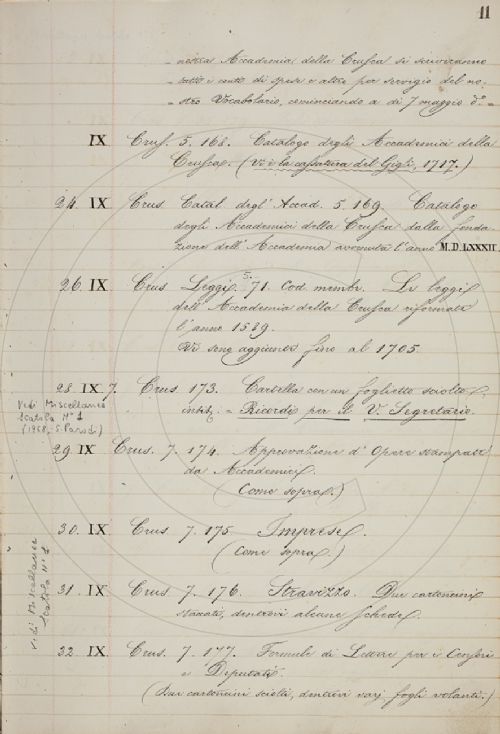 11
nostra Accademia della Crusca si scriveranno
tutti i conti di spese e altro per servigio del no-
stro Vocabolario, cominciando a dì 7 maggio d°.
IX Crus. 5. 168. Catalogo degli Accademici della
Crusca. (Vi è la cassatura del Gigli, 1717.)
24. IX Crus Catal. degl' Accad. 5. 169. Catalogo
degli Accademici della Crusca dalla fonda-
zione dell' Accademia avvenuta l'anno M.D.LXXXII.
26. IX Crus Leggi. 5. 71. Cod. membr. Le leggi
dell' Accademia della Crusca riformate
l'anno 1589.
Vi sono aggiunte fino al 1705.
28. IX 7. Crus. 173. Cartella con un foglietto sciolto,
intit. = Ricordi per S. V. Segretario.
Vedi Miscellanea
Scatola N° 1
(1968, S. Parodi)
29 IX Crus. 7. 174. Approvazione d' Opere stampate
da Accademici.
(Come sopra.)
30. IX Crus 7. 175 Imprese.
(Come sopra)
vedi Miscellanea
Scatola N° 1
31. IX Crus. 7. 176. Stravizzo. Due cartoncini
staccati, dentrovi alcune schede.
32. IX. Crus. 7. 177. Formule di Lettere per i Censori
e Deputati.
(Due cartoncini sciolti, dentrovi varj fogli volanti.)